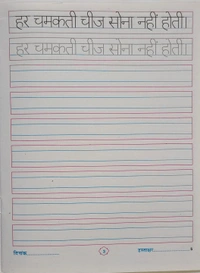 हर चमकती चीज सोना नहीं होती।
हर चमकती चीज सोना नहीं होती।
दिनांक
हस्ताक्षर